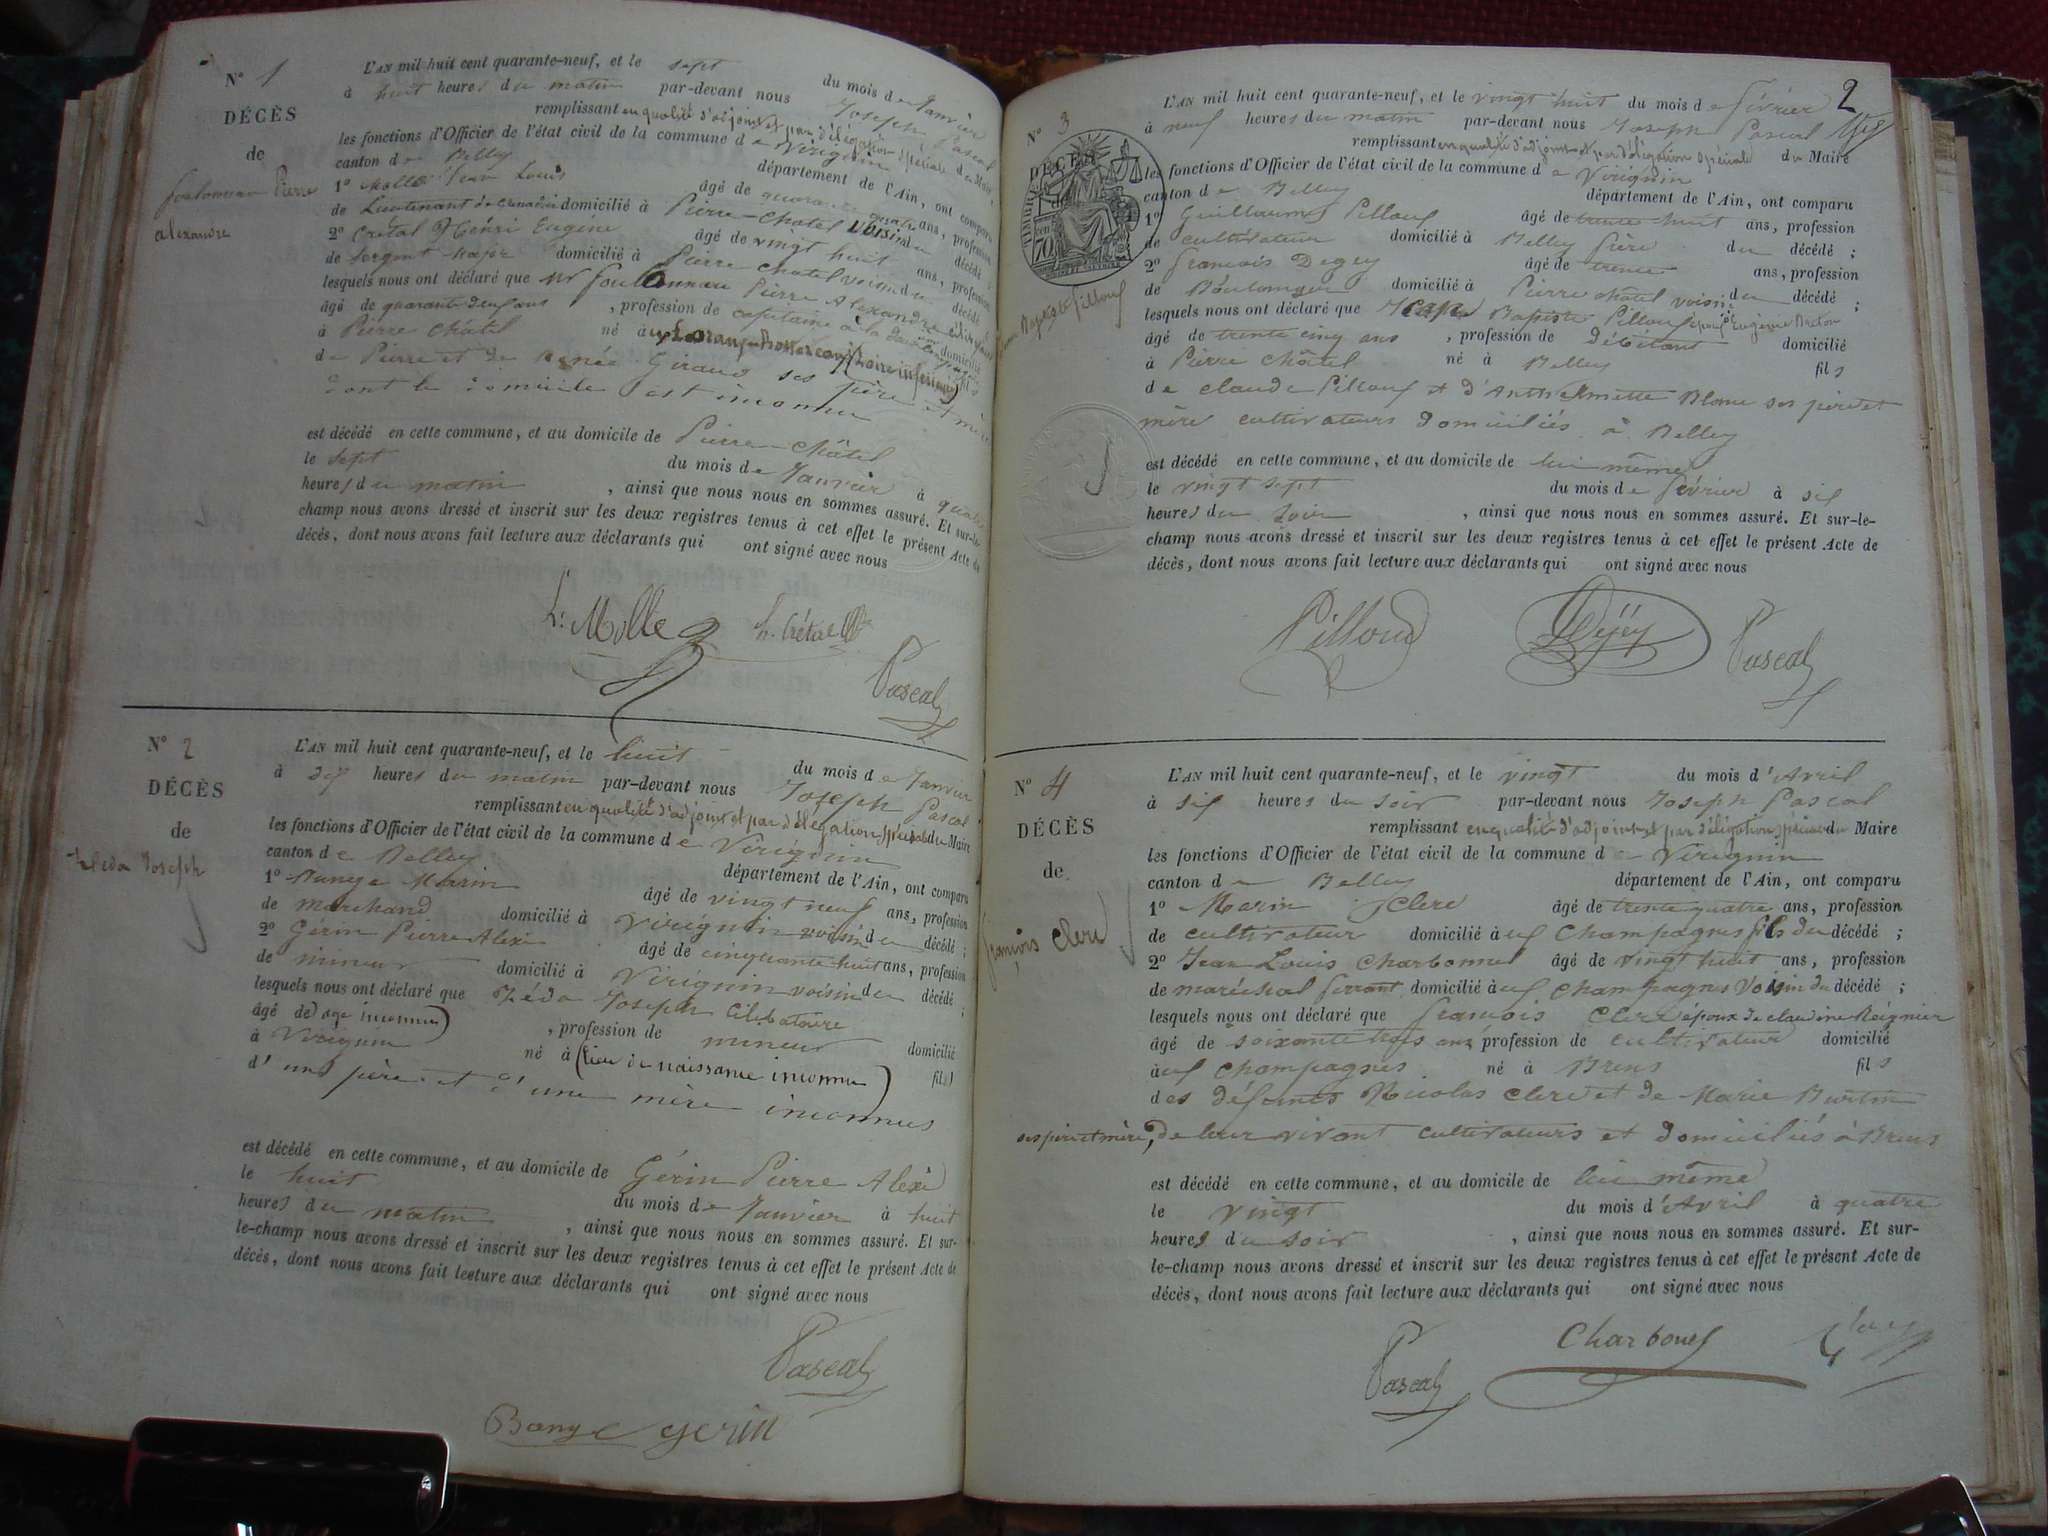 N° 1
DÉCÈS
de
Pierre
alexandre
L'AN mil huit cent quarante-neuf, et le sept du mois de Janvier
à huit heures du matin par-devant nous Joseph Pascal
remplissant en qualité d'adjoint et par délégation spéciale du Maire
les fonctions d'Officier de l'état civil de la commune de Virignin
canton de Belley département de l'Ain, ont comparu
1° Molle Jean Louis âgé de quarante quatre ans, profession
de Lieutenant de Grenadier domicilié à Pierre-Chatel voisin du décédé
2° Crétal Henri Eugène âgé de vingt huit ans, profession
de Sergent Major domicilié à Pierre Chatel voisin du décédé
lesquels nous ont déclaré que Mr Pierre Alexandre
âgé de quarante deux ans, profession de capitaine domicilié
à Pierre Châtel né à (Loire inférieure)
de Pierre et de Renée Giraud ses père et mère
dont le domicile est inconnu
est décédé en cette commune, et au domicile de Pierre-Châtel
le sept du mois de Janvier à quatre
heures du matin, ainsi que nous nous en sommes assuré. Et sur-le-
champ nous avons dressé et inscrit sur les deux registres tenus à cet effet le présent Acte de
décès, dont nous avons fait lecture aux déclarants qui ont signé avec nous
L. Molle h. Crétal
Pascal
N° 2
DÉCÈS
de
Zéda Joseph
L'AN mil huit cent quarante-neuf, et le huit du mois de Janvier
à dix heures du matin par-devant nous Joseph Pascal
remplissant en qualité d'adjoint et par délégation spéciale du Maire
les fonctions d'Officier de l'état civil de la commune de Virignin
canton de Belley département de l'Ain, ont comparu
1° Bange Marin âgé de vingt neuf ans, profession
de marchand domicilié à Virignin voisin du décédé ;
2° Gerin Pierre Alexi âgé de cinquante huit ans, profession
de mineur domicilié à Virignin voisin du décédé ;
lesquels nous ont déclaré que Zéda Joseph Célibataire
âgé de (age inconnu), profession de mineur domicilié
à Virignin né à (lieu de naissance inconnu) fils
d'un père et d'une mère inconnus
est décédé en cette commune, et au domicile de Gérin Pierre Alexi
le huit du mois de Janvier à huit
heures du matin, ainsi que nous nous en sommes assuré. Et sur-
le-champ nous avons dressé et inscrit sur les deux registres tenus à cet effet le présent Acte de
décès, dont nous avons fait lecture aux déclarants qui ont signé avec nous
Pascal
Bange gerin
2
N° 3
DÉCÈS
de
Jean Baptiste Pilloud
L'AN mil huit cent quarante-neuf, et le vingt huit du mois de février
à neuf heures du matin par-devant nous Joseph Pascal
remplissant en qualité d'adjoint et par délégation spéciale du Maire
les fonctions d'Officier de l'état civil de la commune de Virignin
canton de Belley département de l'Ain, ont comparu
1° Guillaume Pilloud âgé de trente huit ans, profession
de cultivateur domicilié à Belley frère du décédé ;
2° francois Degey âgé de trente ans, profession
de Boulanger domicilié à Pierre châtel voisin du décédé ;
lesquels nous ont déclaré que Jean Baptiste Pilloud époux Eugénie
âgé de trente cinq ans, profession de débitant domicilié
à Pierre Châtel né à Belley fils
de claude Pilloud et d'Anthelmette Blanc ses père et
mère cultivateurs domiciliés à Belley
est décédé en cette commune, et au domicile de lui même
le vingt sept du mois de février à six
heures du soir, ainsi que nous nous en sommes assuré. Et sur-le-
champ nous avons dressé et inscrit sur les deux registres tenus à cet effet le présent Acte de
décès, dont nous avons fait lecture aux déclarants qui ont signé avec nous
Pilloud Déjey Pascal
N° 4
DÉCÈS
de
françois Clerc
L'AN mil huit cent quarante-neuf, et le vingt du mois d'Avril
à six heures du soir par-devant nous Joseph Pascal
remplissant en qualité d'adjoint et par délégation spéciale du Maire
les fonctions d'Officier de l'état civil de la commune de Virignin
canton de Belley département de l'Ain, ont comparu
1° Marin Clerc âgé de trente quatre ans, profession
de cultivateur domicilié à Champagnes fils du décédé ;
2° Jean Louis Charbonnel âgé de vingt huit ans, profession
de maréchal ferrant domicilié à Champagnes Voisin du décédé ;
lesquels nous ont déclaré que francois Clerc époux de claudine Reignier
âgé de soixante trois ans, profession de cultivateur domicilié
à Champagnes né à Brens fils
des défunts Nicolas Clerc et de Marie Burtin
ses père et mère, de leur vivant cultivateurs et domiciliés à Brens
est décédé en cette commune, et au domicile de lui même
le vingt du mois d'Avril à quatre
heures du soir, ainsi que nous nous en sommes assuré. Et sur-
le-champ nous avons dressé et inscrit sur les deux registres tenus à cet effet le présent Acte de
décès, dont nous avons fait lecture aux déclarants qui ont signé avec nous
Pascal Charbonel